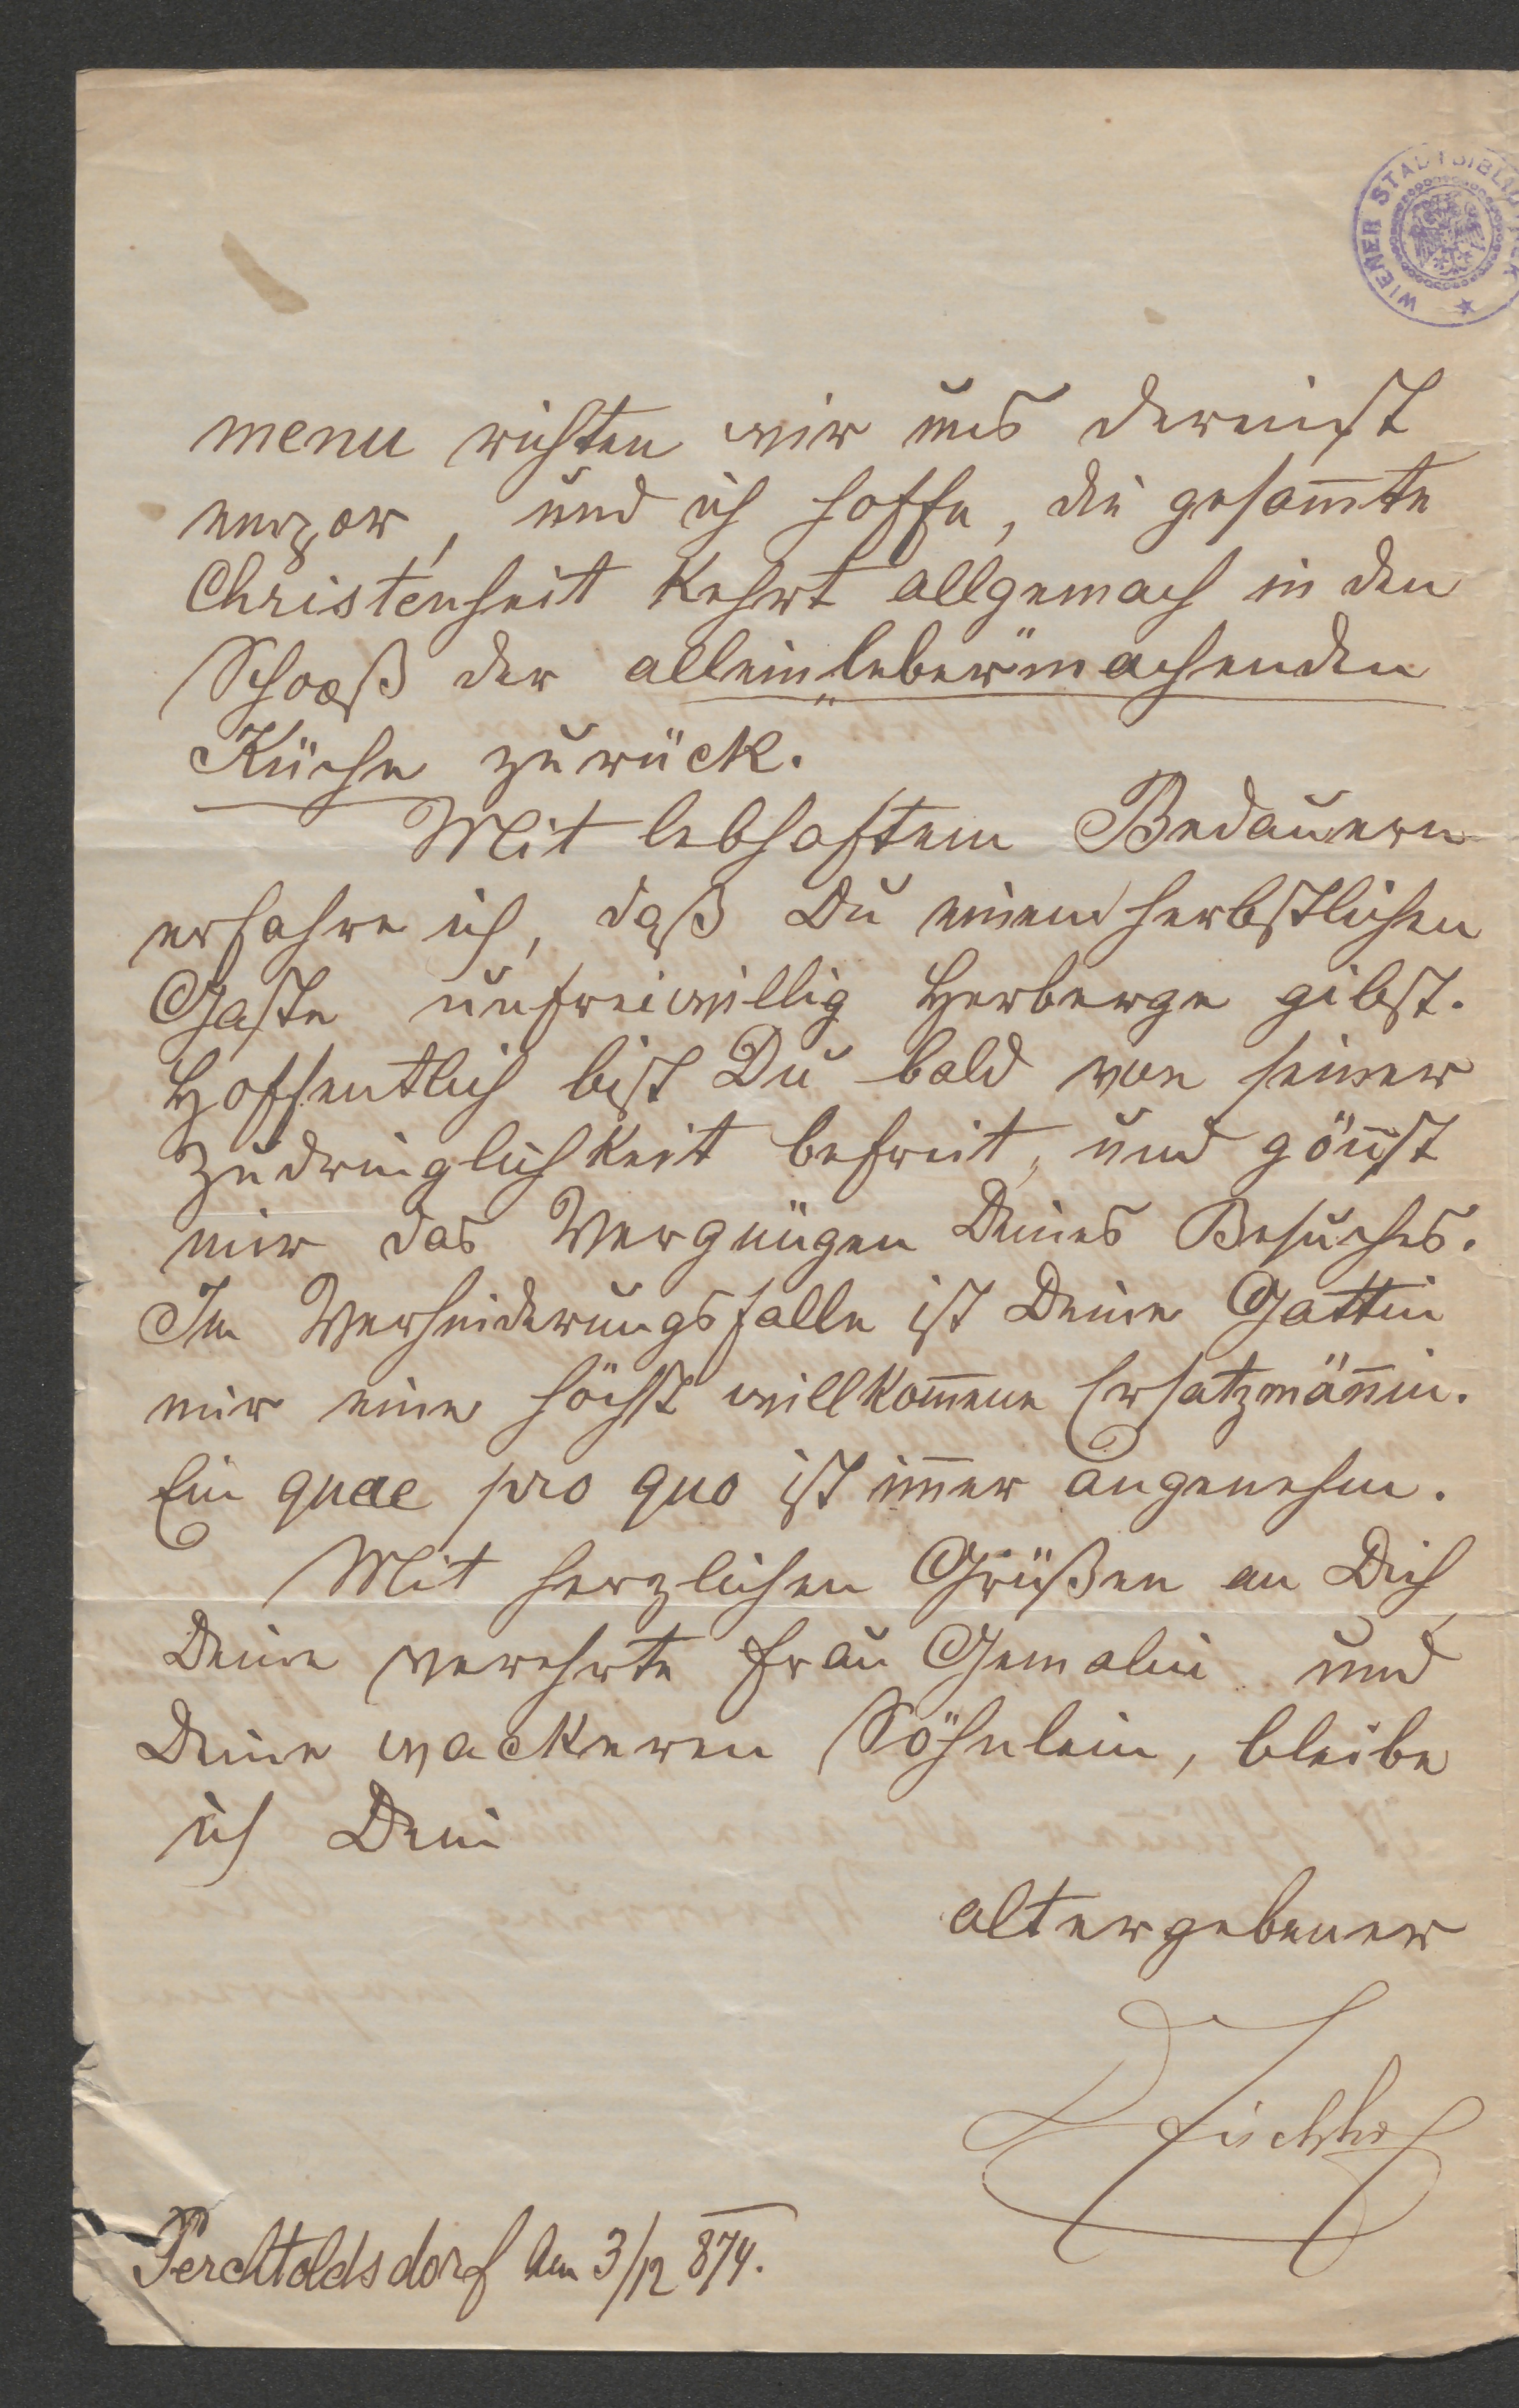 WIENER STADTBIBLIOTHEK
menu richten wir uns dereinst
empor, und ich hoffe, die gesam̄te
Christenheit kehrt allgemach in den
Schooß der allein„leber“machenden
Küche zurück.
Mit lebhaftem Bedauern
erfahre ich, daß Du einem herbstlichen
Gaste unfreiwillig Herberge gibst.
Hoffentlich bist Du bald von seiner
Zudringlichkeit befreit, und gön̄st
mir das Vergnügen Deines Besuches.
Im Verhinderungsfalle ist Deine Gattin
mir eine höchst willkom̄ene Ersatzmän̄in.
Ein quae pro quo ist im̄er angenehm.
Mit herzlichen Grüßen an Dich,
Deine verehrte Frau Gemalin und
Deine wackeren Söhnlein, bleibe
ich Dein
altergebener
Fischhof
Perchtoldsdorf den 3/12 874.